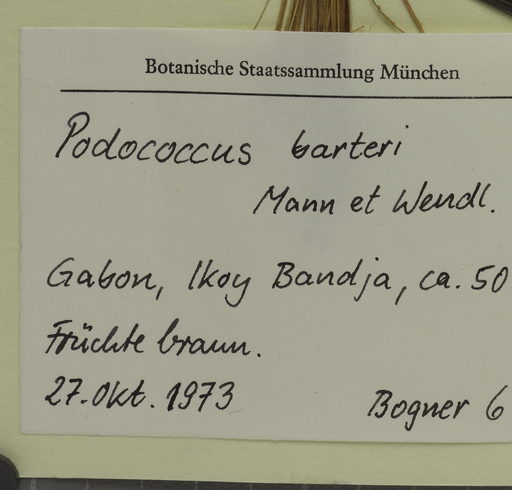 Botanische Staatssammlung München
Podococcus barteri
Mann et Wendl.
Gabon, Ikoy Bandja, ca. 50
Früchte braun.
27. Okt. 1973 Bogner 6